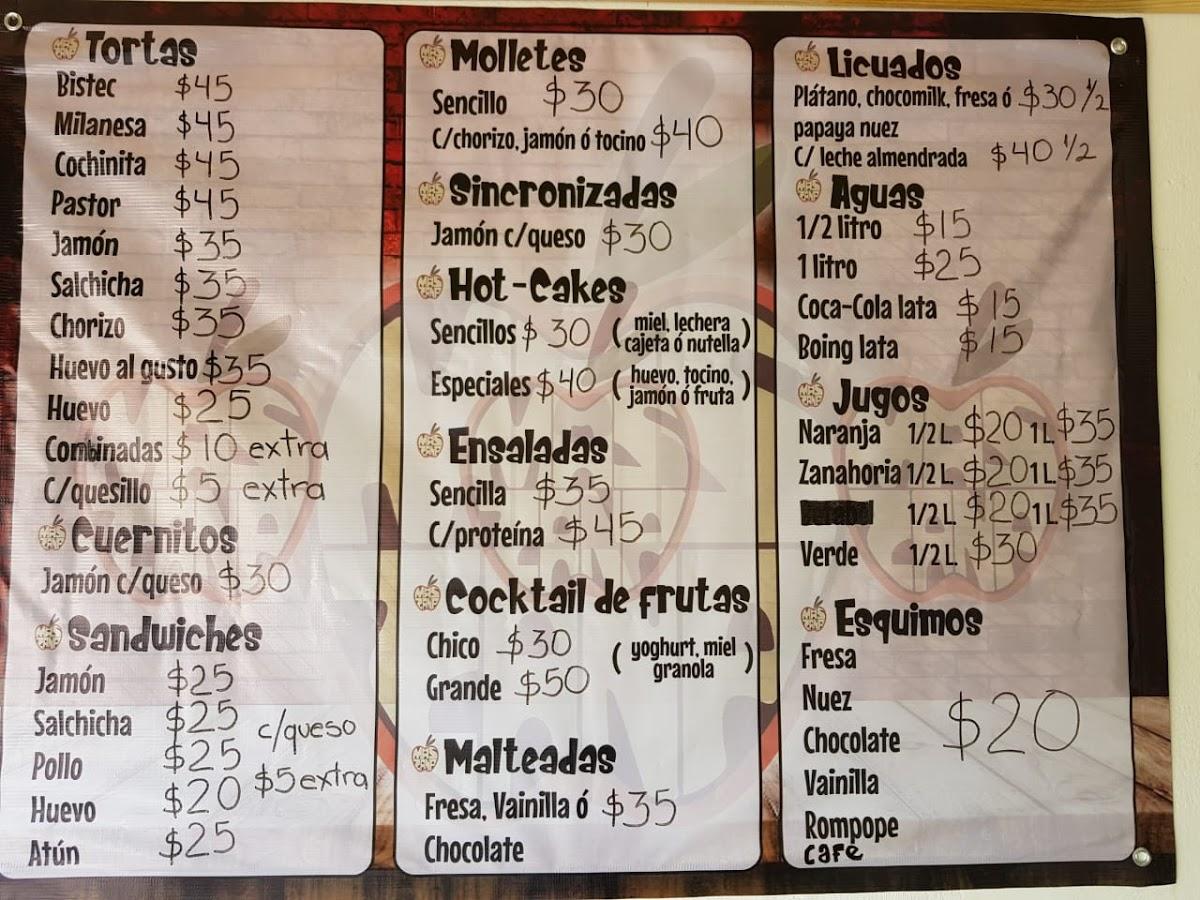 Tortas
Bistec $45
Milanesa $45
Cochinita $45
Pastor $45
Jamón $35
Salchicha $35
Chorizo $35
Huevo al gusto $35
Huevo $25
Combinadas $10 extra
C/quesillo $5 extra
Cuernitos
Jamón c/queso $30
Sandwiches
Jamón $25
Salchicha $25
Pollo $25
Huevo $20
Atún $25
c/queso
$5 extra
Molletes
Sencillo $30
C/chorizo, jamón ó tocino $40
Sincronizadas
Jamón c/queso $30
Hot-Cakes
Sencillos $30 (miel, lechera
cajeta ó nutella)
Especiales $40 (huevo, tocino,
jamón ó fruta)
Ensaladas
Sencilla $35
C/proteína $45
Cocktail de frutas
Chico $30 (yoghurt, miel
granola)
Grande $50
Malteadas
Fresa, Vainilla ó $35
Chocolate
Licuados
Plátano, chocomilk, fresa ó $30 1/2
papaya nuez
C/ leche almendrada $40 1/2
Aguas
1/2 litro $15
1 litro $25
Coca-Cola lata $15
Boing lata $15
Jugos
Naranja 1/2 L $20 1L $35
Zanahoria 1/2 L $20 1L $35
1/2 L $20 1L $35
Verde 1/2 L $30
Esquimos
Fresa
Nuez
Chocolate $20
Vainilla
Rompope
cafe